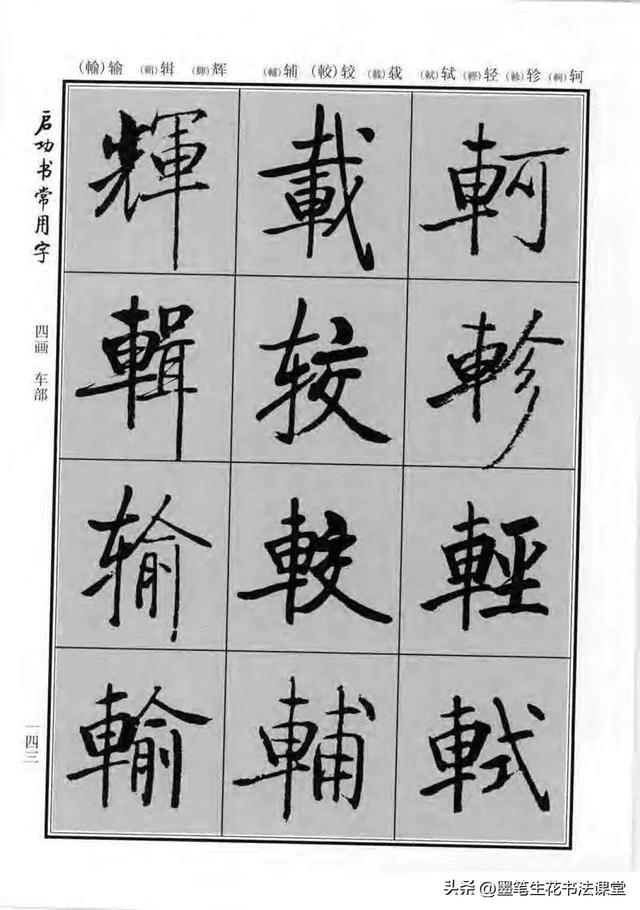 (輸)输 (輯)辑 (輝)辉 (輔)辅 (較)较 (載)载 (軾)轼 (輕)轻 (軫)轸 (軻)轲
启功书常用字
四画 车部
一四三
軻
軫
輕
軾
載
较
較
輔
輝
輯
输
輸
头条 @墨笔生花书法课堂